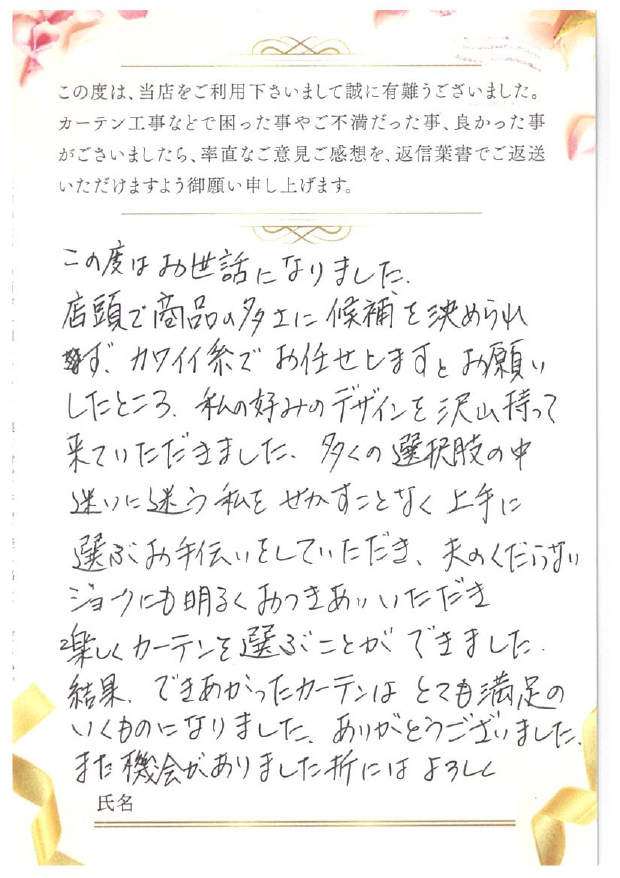 この度は、当店をご利用下さいまして誠に有難うございました。
カーテン工事などで困った事やご不満だった事、良かった事
がございましたら、率直なご意見ご感想を、返信葉書でご返送
いただけますよう御願い申し上げます。
この度はお世話になりました.
店頭で商品の多さに候補を決められ
ず、カワイイ系でお任せしますとお願い
したところ、私の好みのデザインを沢山持って
来ていただきました、多くの選択肢の中
迷いに迷う私をせかすことなく上手に
選ぶお手伝いをしていただき、夫のくだらない
ジョークにも明るくおつきあいいただき
楽しくカーテンを選ぶことができました.
結果、できあがったカーテンはとても満足の
いくものになりました、ありがとうございました、
また機会がありました折にはよろしく
氏名